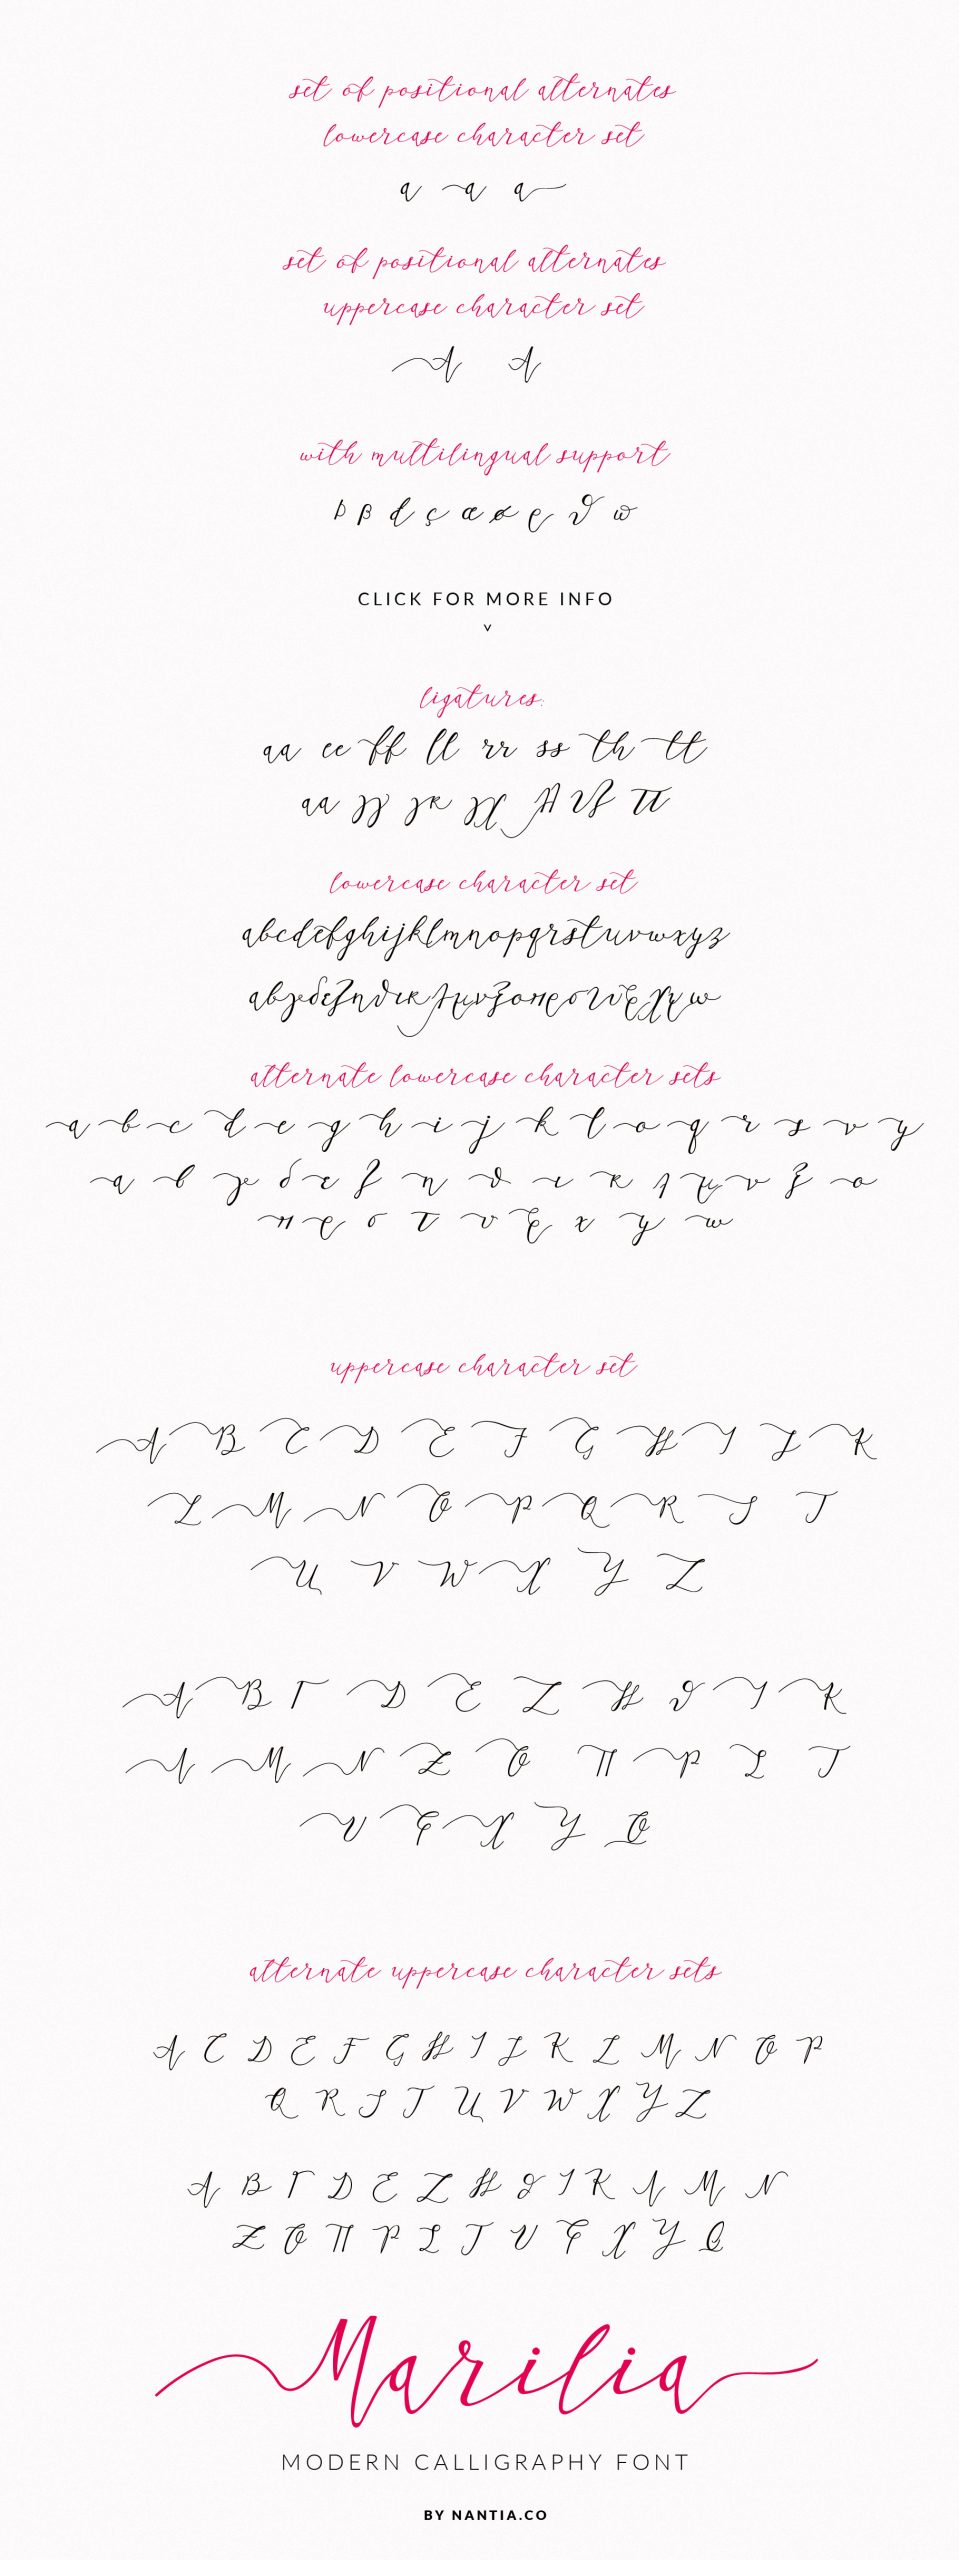 set of positional alternates
lowercase character set
a a a
set of positional alternates
uppercase character set
A A
with multilingual support
þ β d ç æ ø ϱ ϑ ϖ
CLICK FOR MORE INFO
v
ligatures:
aa ee ff ll rr ss th tt
αα γγ γκ γχ λλ ττ
lowercase character set
abcdefghijklmnopqrstuvwxyz
αβγδεζηθικλμνξοπρστυφχψω
alternate lowercase character sets
a b c d e g h i j k l o q r s v y
α β γ δ ε ζ η θ ι κ λ μ ν ξ ο
π ρ σ τ υ φ χ ψ ω
uppercase character set
A B C D E F G H I J K
L M N O P Q R S T
U V W X Y Z
Α Β Γ Δ Ε Ζ Η Θ Ι Κ
Λ Μ Ν Ξ Ο Π Ρ Σ Τ
Υ Φ Χ Ψ Ω
alternate uppercase character sets
A C D E F G H I J K L M N O P
Q R S T U V W X Y Z
Α Β Γ Δ Ε Ζ Η Θ Ι Κ Λ Μ Ν
Ξ Ο Π Ρ Σ Τ Υ Φ Χ Ψ Ω
Marilia
MODERN CALLIGRAPHY FONT
BY NANTIA.CO